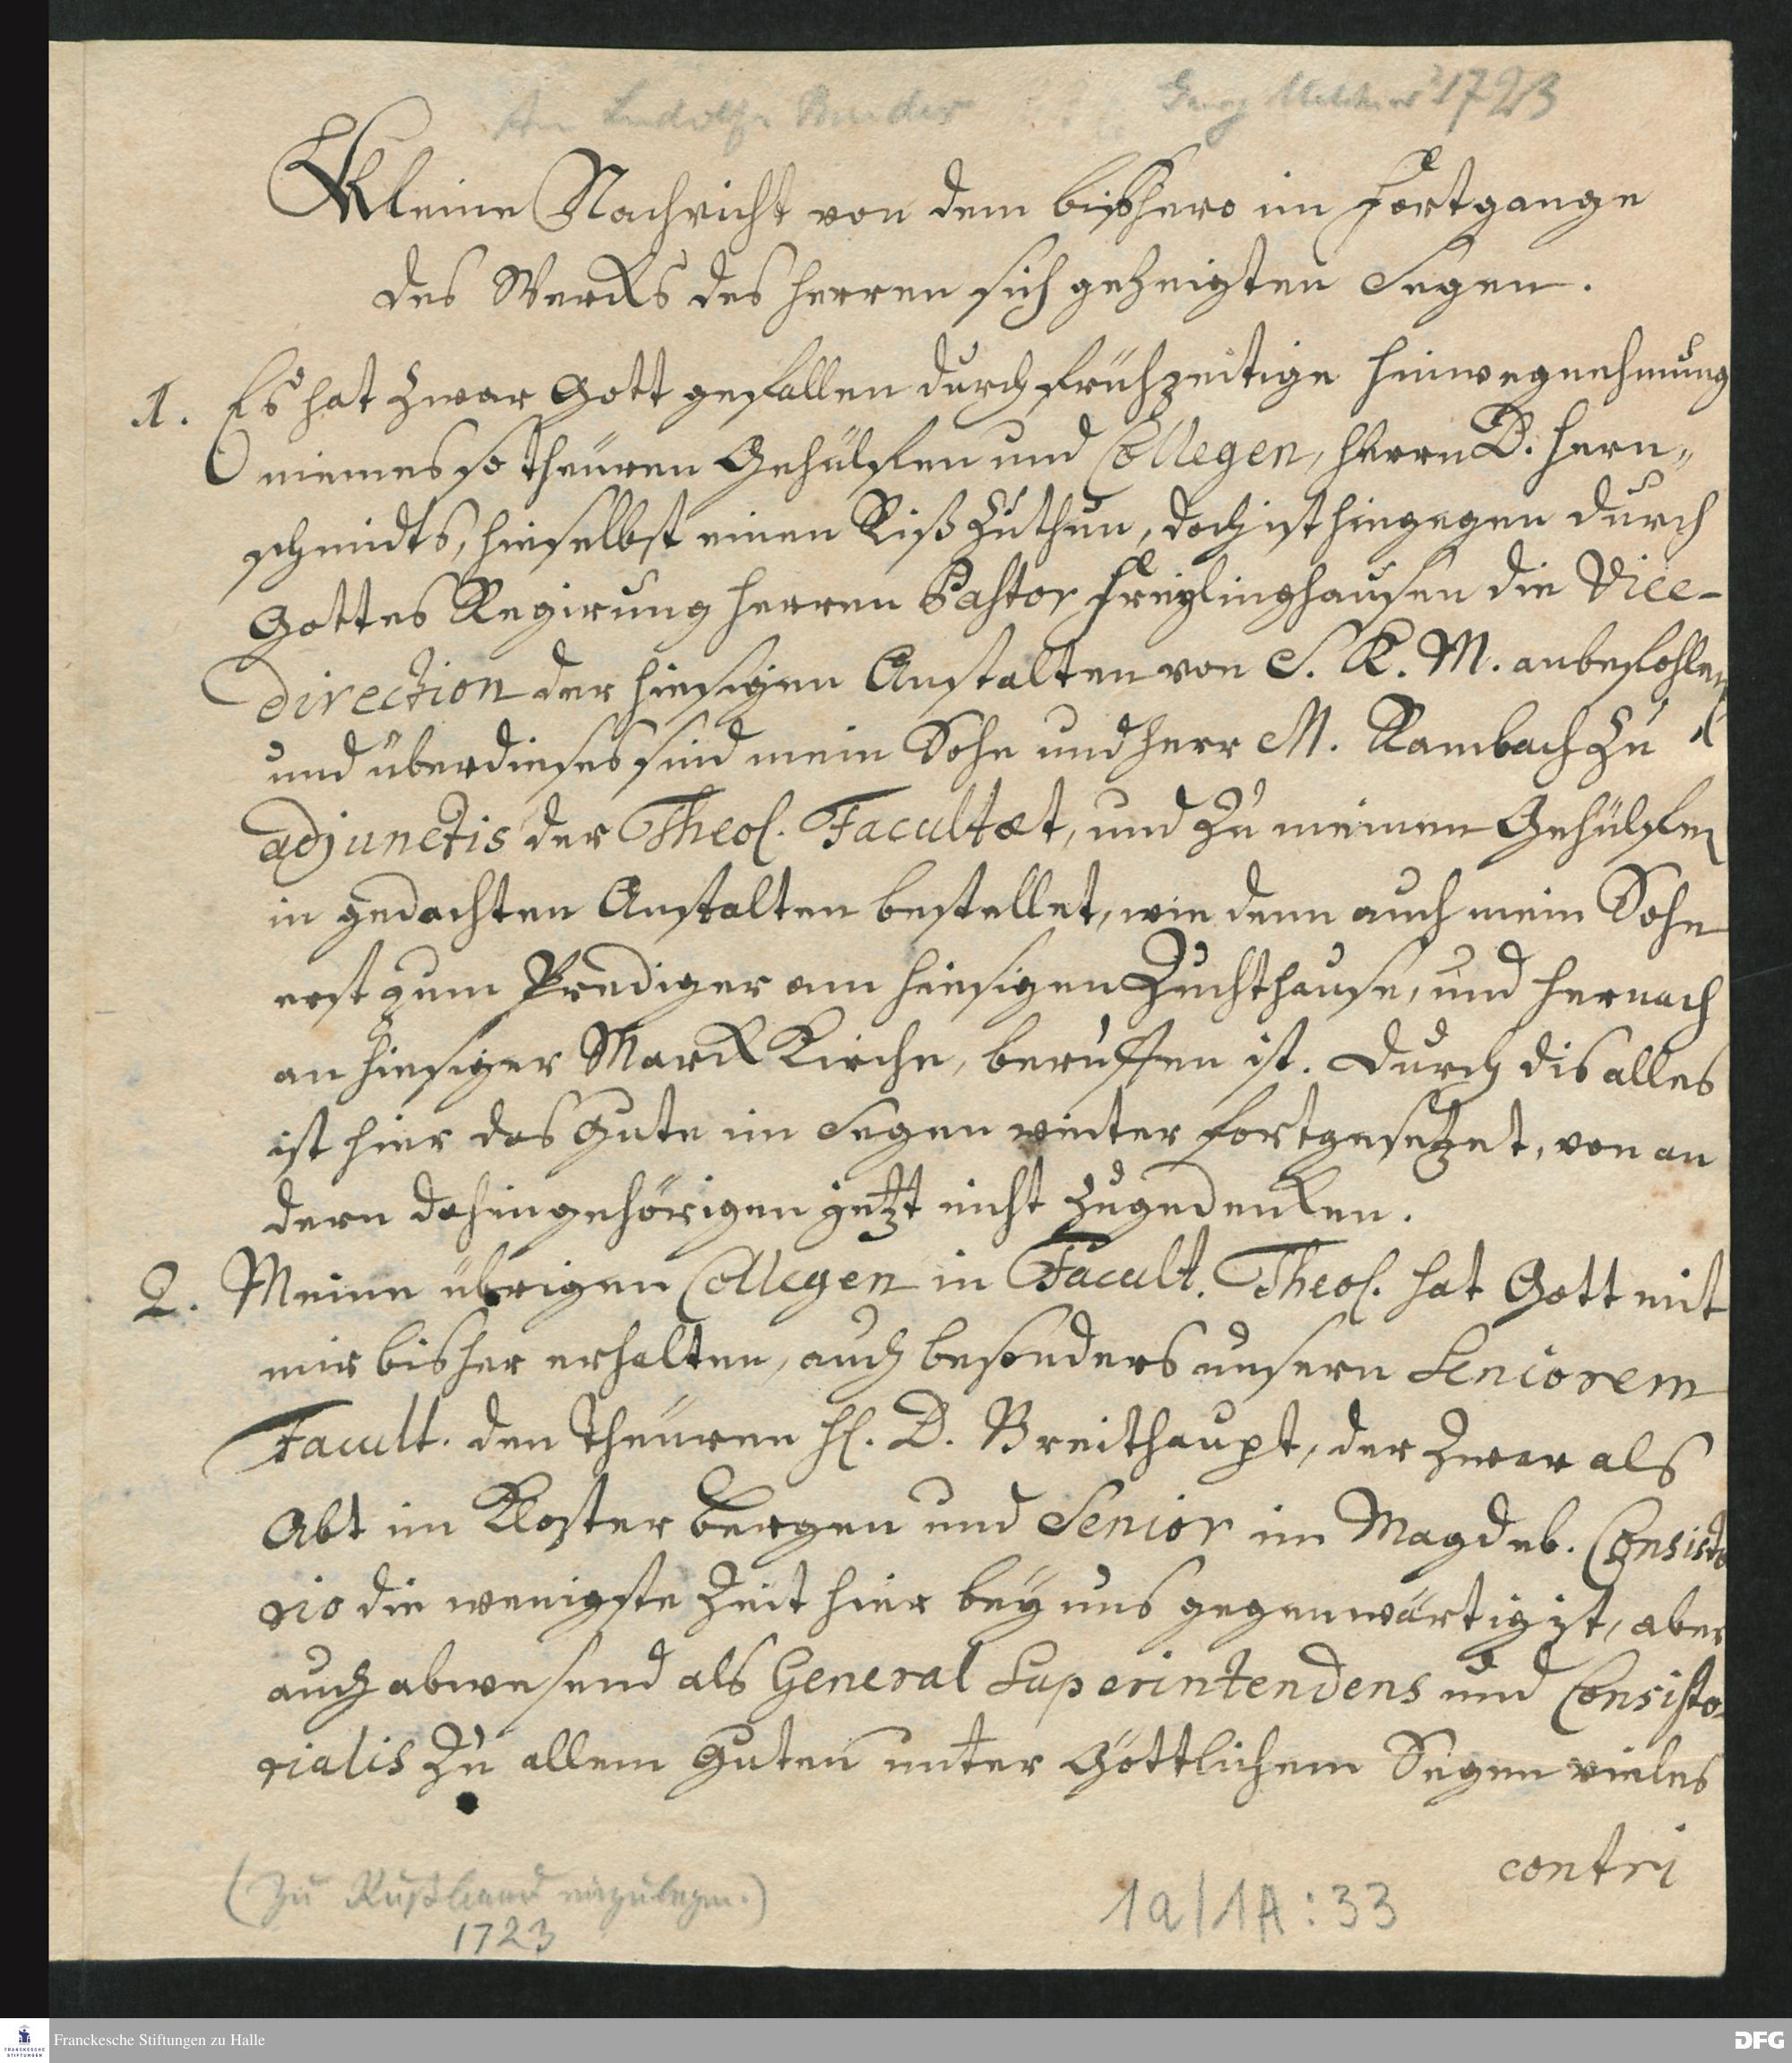 1723
Kleine Nachricht von dem bißhero im Fortgange
des Wercks des Herren sich gezeigten Segen.
1. Es hat zwar Gott gefallen durch frühzeitige Hinwegnehmung
meines so theuren Gehülffen und Collegen, Herrn D. Hern„
schmidts, hieselbst einen Riß zuthun, doch ist hingegen durch
Gottes Regirung Herren Pastor Freylinghausen die Vice-
direction der hiesigen Anstalten von S. K. M. anbefohlen
und überdieses sind mein Sohn und Herr M. Rambach zu
adjunctis der Theol. Facultæt, und zu meinen Gehülffen
in gedachten Anstalten bestellet, wie denn auch mein Sohn
erst zum Prediger am hiesigen Zuchthause, und hernach
an hiesiger Marck Kirche, beruffen ist. Durch dis alles
ist hier das Gute im Segen weiter fortgesetzet, von an
dern dahingehörigen jetzt nicht zugedencken.
2. Meine übrigen Collegen in Facult. Theol. hat Gott mit
mir bisher erhalten, auch besonders unsern Seniorem
Facult. den theuren H. D. Breithaupt, der zwar als
Abt im Kloster Bergen und Senior im Magdeb. Consisto
rio die wenigste Zeit hier bey uns gegenwärtig ist, aber
auch abwesend als General Superintendens und Consisto-
rialis zu allem Guten unter Göttlichem Segen vieles
contri
(Zu Rußland einzulegen.)
1723
1a/1A:33
Franckesche Stiftungen zu Halle
FRANCKESCHE STIFTUNGEN
DFG